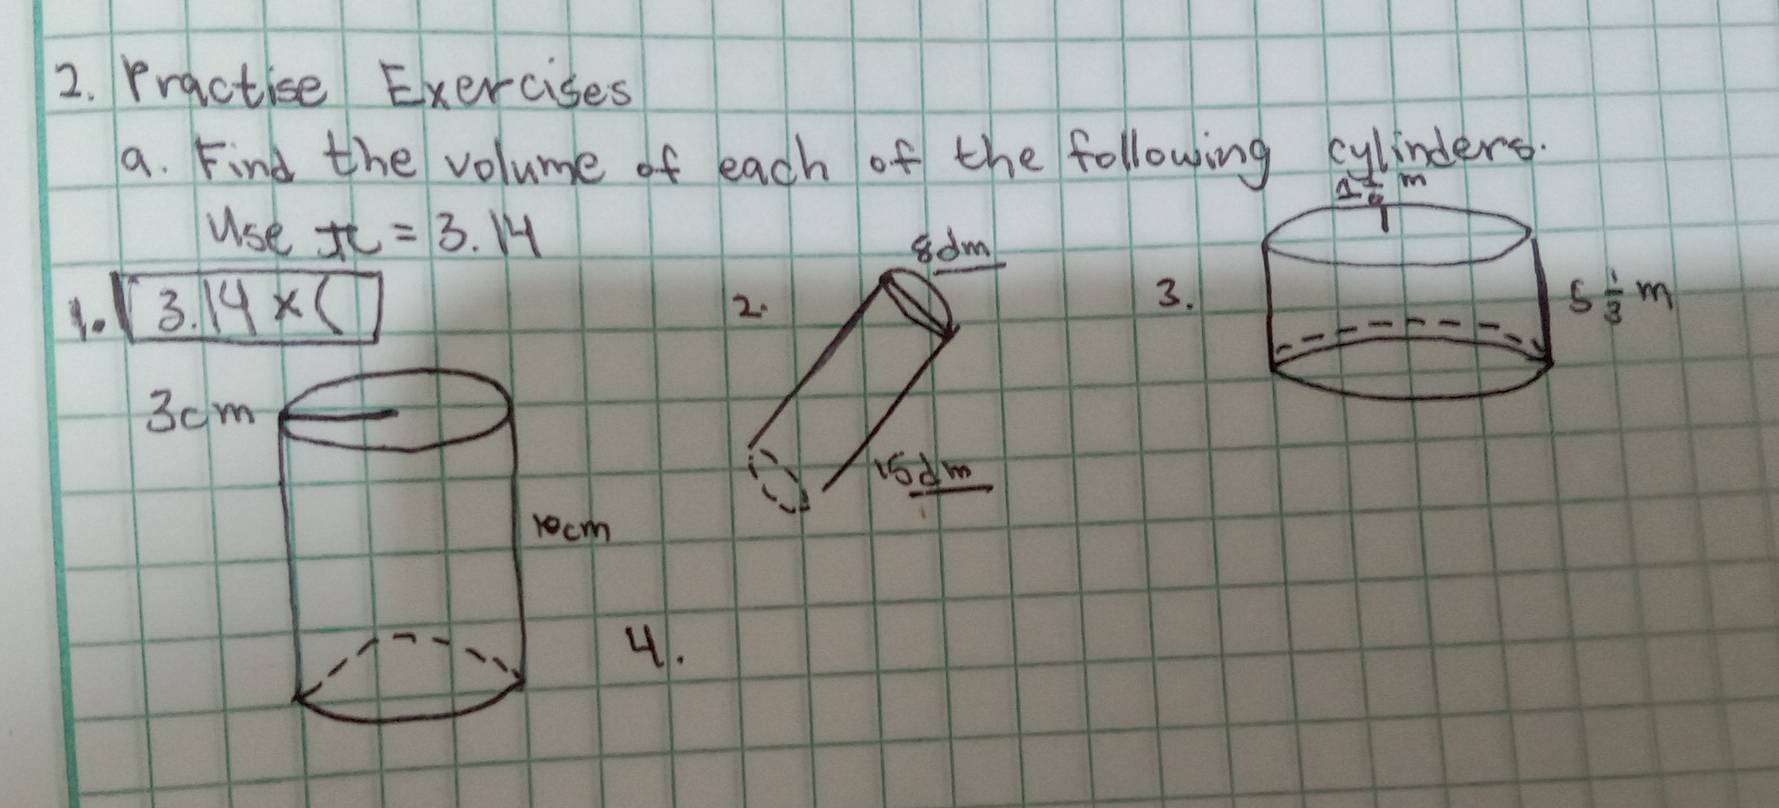 2. Practise Exercises
a. Find the volume of each of the following cylinders.
Use π = 3.14
1. 3.14 × (
3cm
10cm
2.
8dm
15dm
3.
m
5 1/3 m
4.